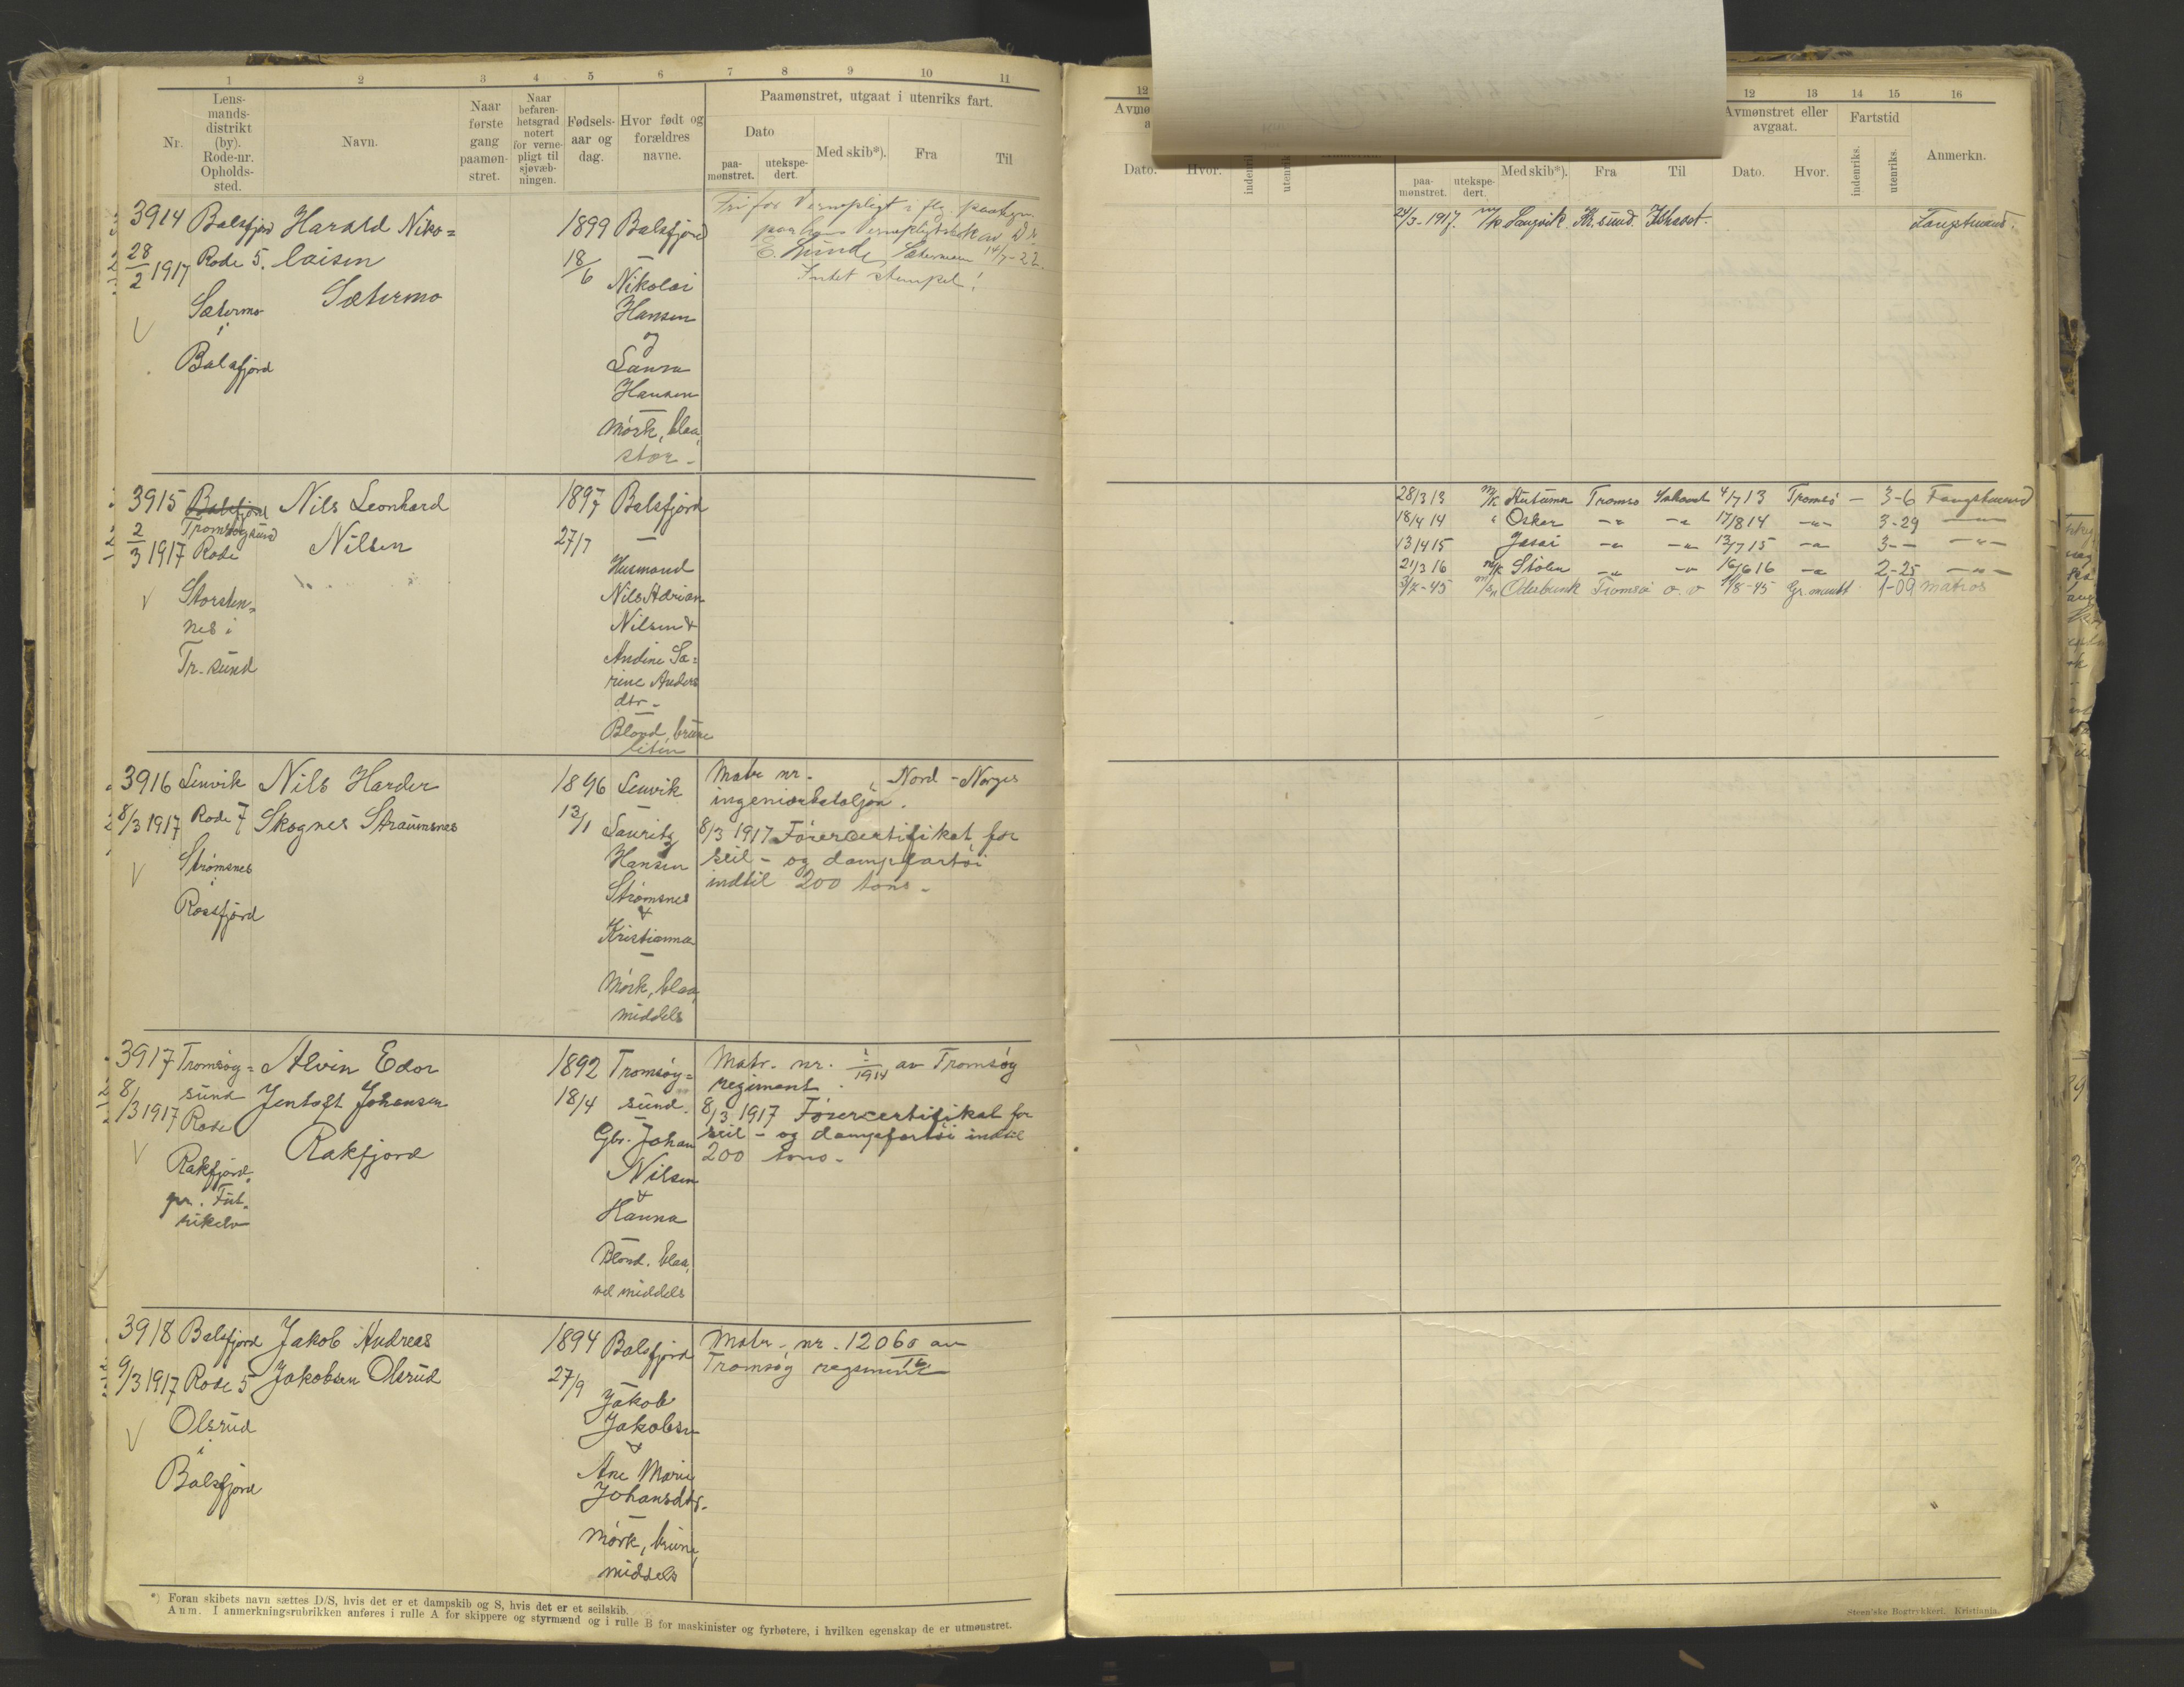 1 2 3 4 5 6 7 8 9 10 11
Nr.
Lens-
mands-
distrikt
(by).
Rode-nr.
Opholds-
sted.
Navn.
Naar
første
gang
paamøn-
stret.
Naar
befaren-
hetsgrad
notert
for verne-
pligt til
sjøvæb-
ningen.
Fødsels-
aar og
dag.
Hvor født og
forældres
navne.
Paamønstret, utgaat i utenriks fart.
Dato
paa-
mønstret.
utekspe-
dert.
Med skib*).
Fra
Til
3914 Balsfjord Harald Niko=
28/2 1917 Rode 5. laisen
Sætermo
Sætermo
i
Balsfjord
1899 Balsfjord
18/6 Nikolai
Hansen
og
Laura
Hansen
Mörk, blaa,
stor -
Fri for Vernepligt
14/7-22.
Intet stempel!
3915 Balsfjord Nils Leonhard
Tromsøysund
2/3 1917 Rode Nilsen
Storsten=
nes i
Tr. sund
1897 Balsfjord
27/7
Husmand
Nils Adrian
Nilsen &
Andine Sæ=
rine Anders
dtr -
Blond, brune
liten
3916 Lenvik Nils Harder
8/3 1917 Rode 7 Skognes Straumsnes
Strømsnes
i
Rossfjord
1896 Lenvik
13/1 Lauritz
Hansen
Strømsnes
&
Kristianna
Mörk, blaa,
middels
Matr nr. , Nord-Norges
ingeniørbataljon.
8/3 1917 Förercertifikat for
seil- og dampfartöi
indtil 200 tons -
3917 Tromsøy= Alvin Edor
8/3 1917 sund Jentoft Johansen
Rode
Rakfjord
Rakfjord,
pr. Fut=
rikelv
1892 Tromsøy=
18/4 sund.
Gbr. Johan
Nilsen
&
Hanna
Blond, blaa,
vel middels
Matr. nr. 1/1914 av Tromsøy
regiment.
8/3 1917 Förercertifikat for
seil- og dampfartöi indtil
200 tons -
3918 Balsfjord Jakob Andreas
9/3 1917 Rode 5 Jakobsen Olsrud
Olsrud
i
Balsfjord
1894 Balsfjord
27/9
Jakob
Jakobsen
&
Ane Marie
Johansdtr.
Mörk, brune,
middels
Matr. nr. 1206 av
Tromsøy regiment
*) Foran skibets navn sættes D/S, hvis det er et dampskib og S, hvis det er et seilskib.
Anm. I anmerkningsrubrikken anføres i rulle A for skippere og styrmænd og i rulle B for maskinister og fyrbøtere, i hvilken egenskap de er utmønstret.
12
Avmø
Dato. Hvor.
paa-
mønstret.
utekspe-
dert.
Med skib*).
Fra
Til
12 13 14 15 16
Avmønstret eller
avgaat.
Fartstid
Dato. Hvor.
indenriks.
utenriks.
Anmerkn.
24/3-1917. M/K Langvik Kr.sund. Ishavet. Fangstmand.
28/3 13 Tromsø Ishavet 4/7 13 Tromsö - 3-6 Fangstmand
18/4 14 " Oskar -"- -"- 17/8 14 -"- 3-29 -"-
13/4 15 Jasai -"- -"- 13/7 15 -"- 3-- -"-
21/3 16 M/K Stölen -"- -"- 16/6 16 -"- 2-25 -"-
Tromsö 1/8-45 1-09 matros
Steen'ske Bogtrykkeri, Kristiania.